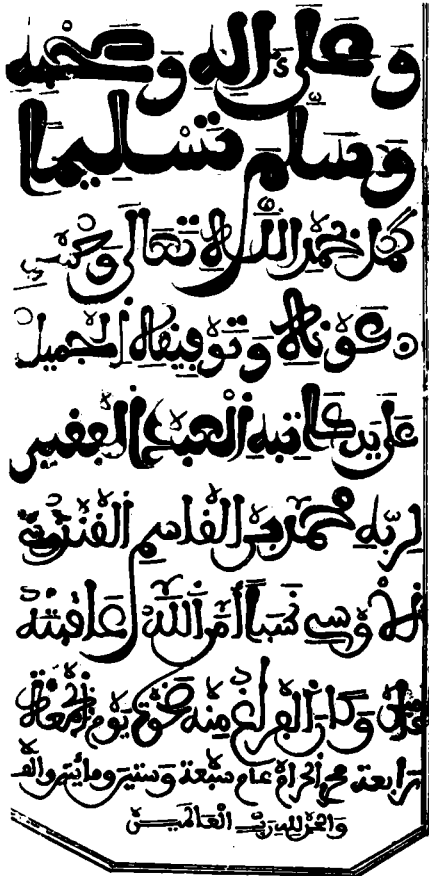 وعلى ءاله وصحبه
وسلم تسليما
كمل بحمد الله تعالى وحسن
عونه وتوفيقه الجميل
على يد كاتبه العبد الفقير
لربه محمد بن القاسم القندوسي
نسبا أمن الله عاقبته
ءامين وكان الفراغ منه ضحوة يوم الجمعة
رابعة محرم الحرام عام سبعة وستين ومائتين والف
والحمد لله رب العالمين